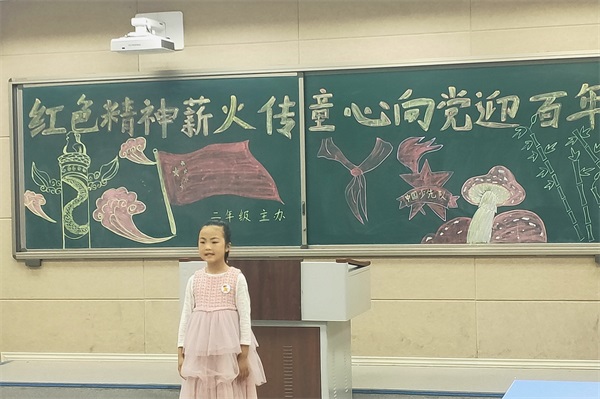 红色精神薪火传 童心向党迎百年
中国少先队
二年级 主办